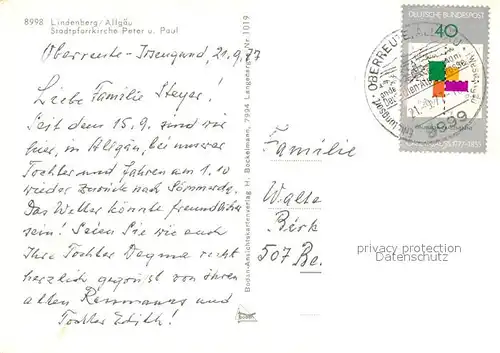 8998 Lindenberg/Allgäu
Stadtpfarrkirche Peter u. Paul
Oberreute-Irsengund, 21.9.77
Liebe Familie Steyer!
Seit dem 15.9. sind wir
hier, im Allgäu, bei unserer
Tochter und fahren am 1.10
wieder zurück nach
Das Wetter könnte freundlicher
sein! Seien Sie wie auch
Ihre Tochter Dagma recht
herzlich gegrüßt von ihren
alten und
Tochter Edith!
Bodan-Ansichtskartenverlag H. Bockelmann, 7994 Langenargen Nr. 1019
Familie
Walte
507 Be.
DEUTSCHE BUNDESPOST
40
OBERREUTE
8999
1777-1855
privacy protection
Datenschutz